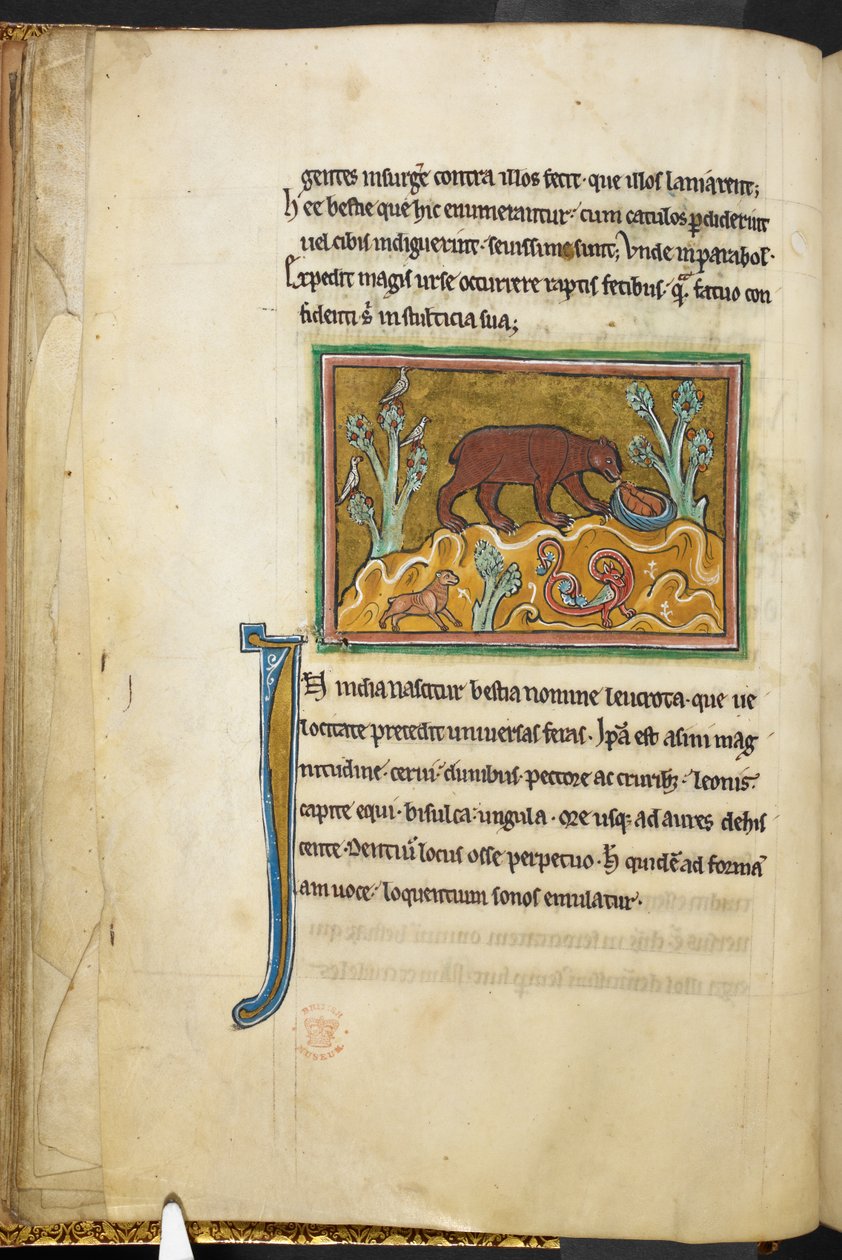 gentes insurgẽ contra illos fecit · que illos laniarent;
hee bestie que hic enumerantur · cum catulos ꝑdiderint
uel cibis indiguerint · seuissime sunt; Vnde in parabol ·
Expedit magis urse occurrere raptis fetibus · qᷓ fatuo con
fidenti s̉ in stulticia sua;
IN india nascitur bestia nomine leucrota · que ue
locitate precedit uniuersas feras · Ip̃a est asini mag
nitudine · cerui · clunibus · pectore ac cruribꝫ · leonis ·
capite equi · bisulca · ungula · ore usqꝫ ad aures dehis
cente · Dentiũ locus osse perpetuo · H̃ quidẽ ad formã
am uoce · loquentium sonos emulatur ·
BRITISH
MUSEUM